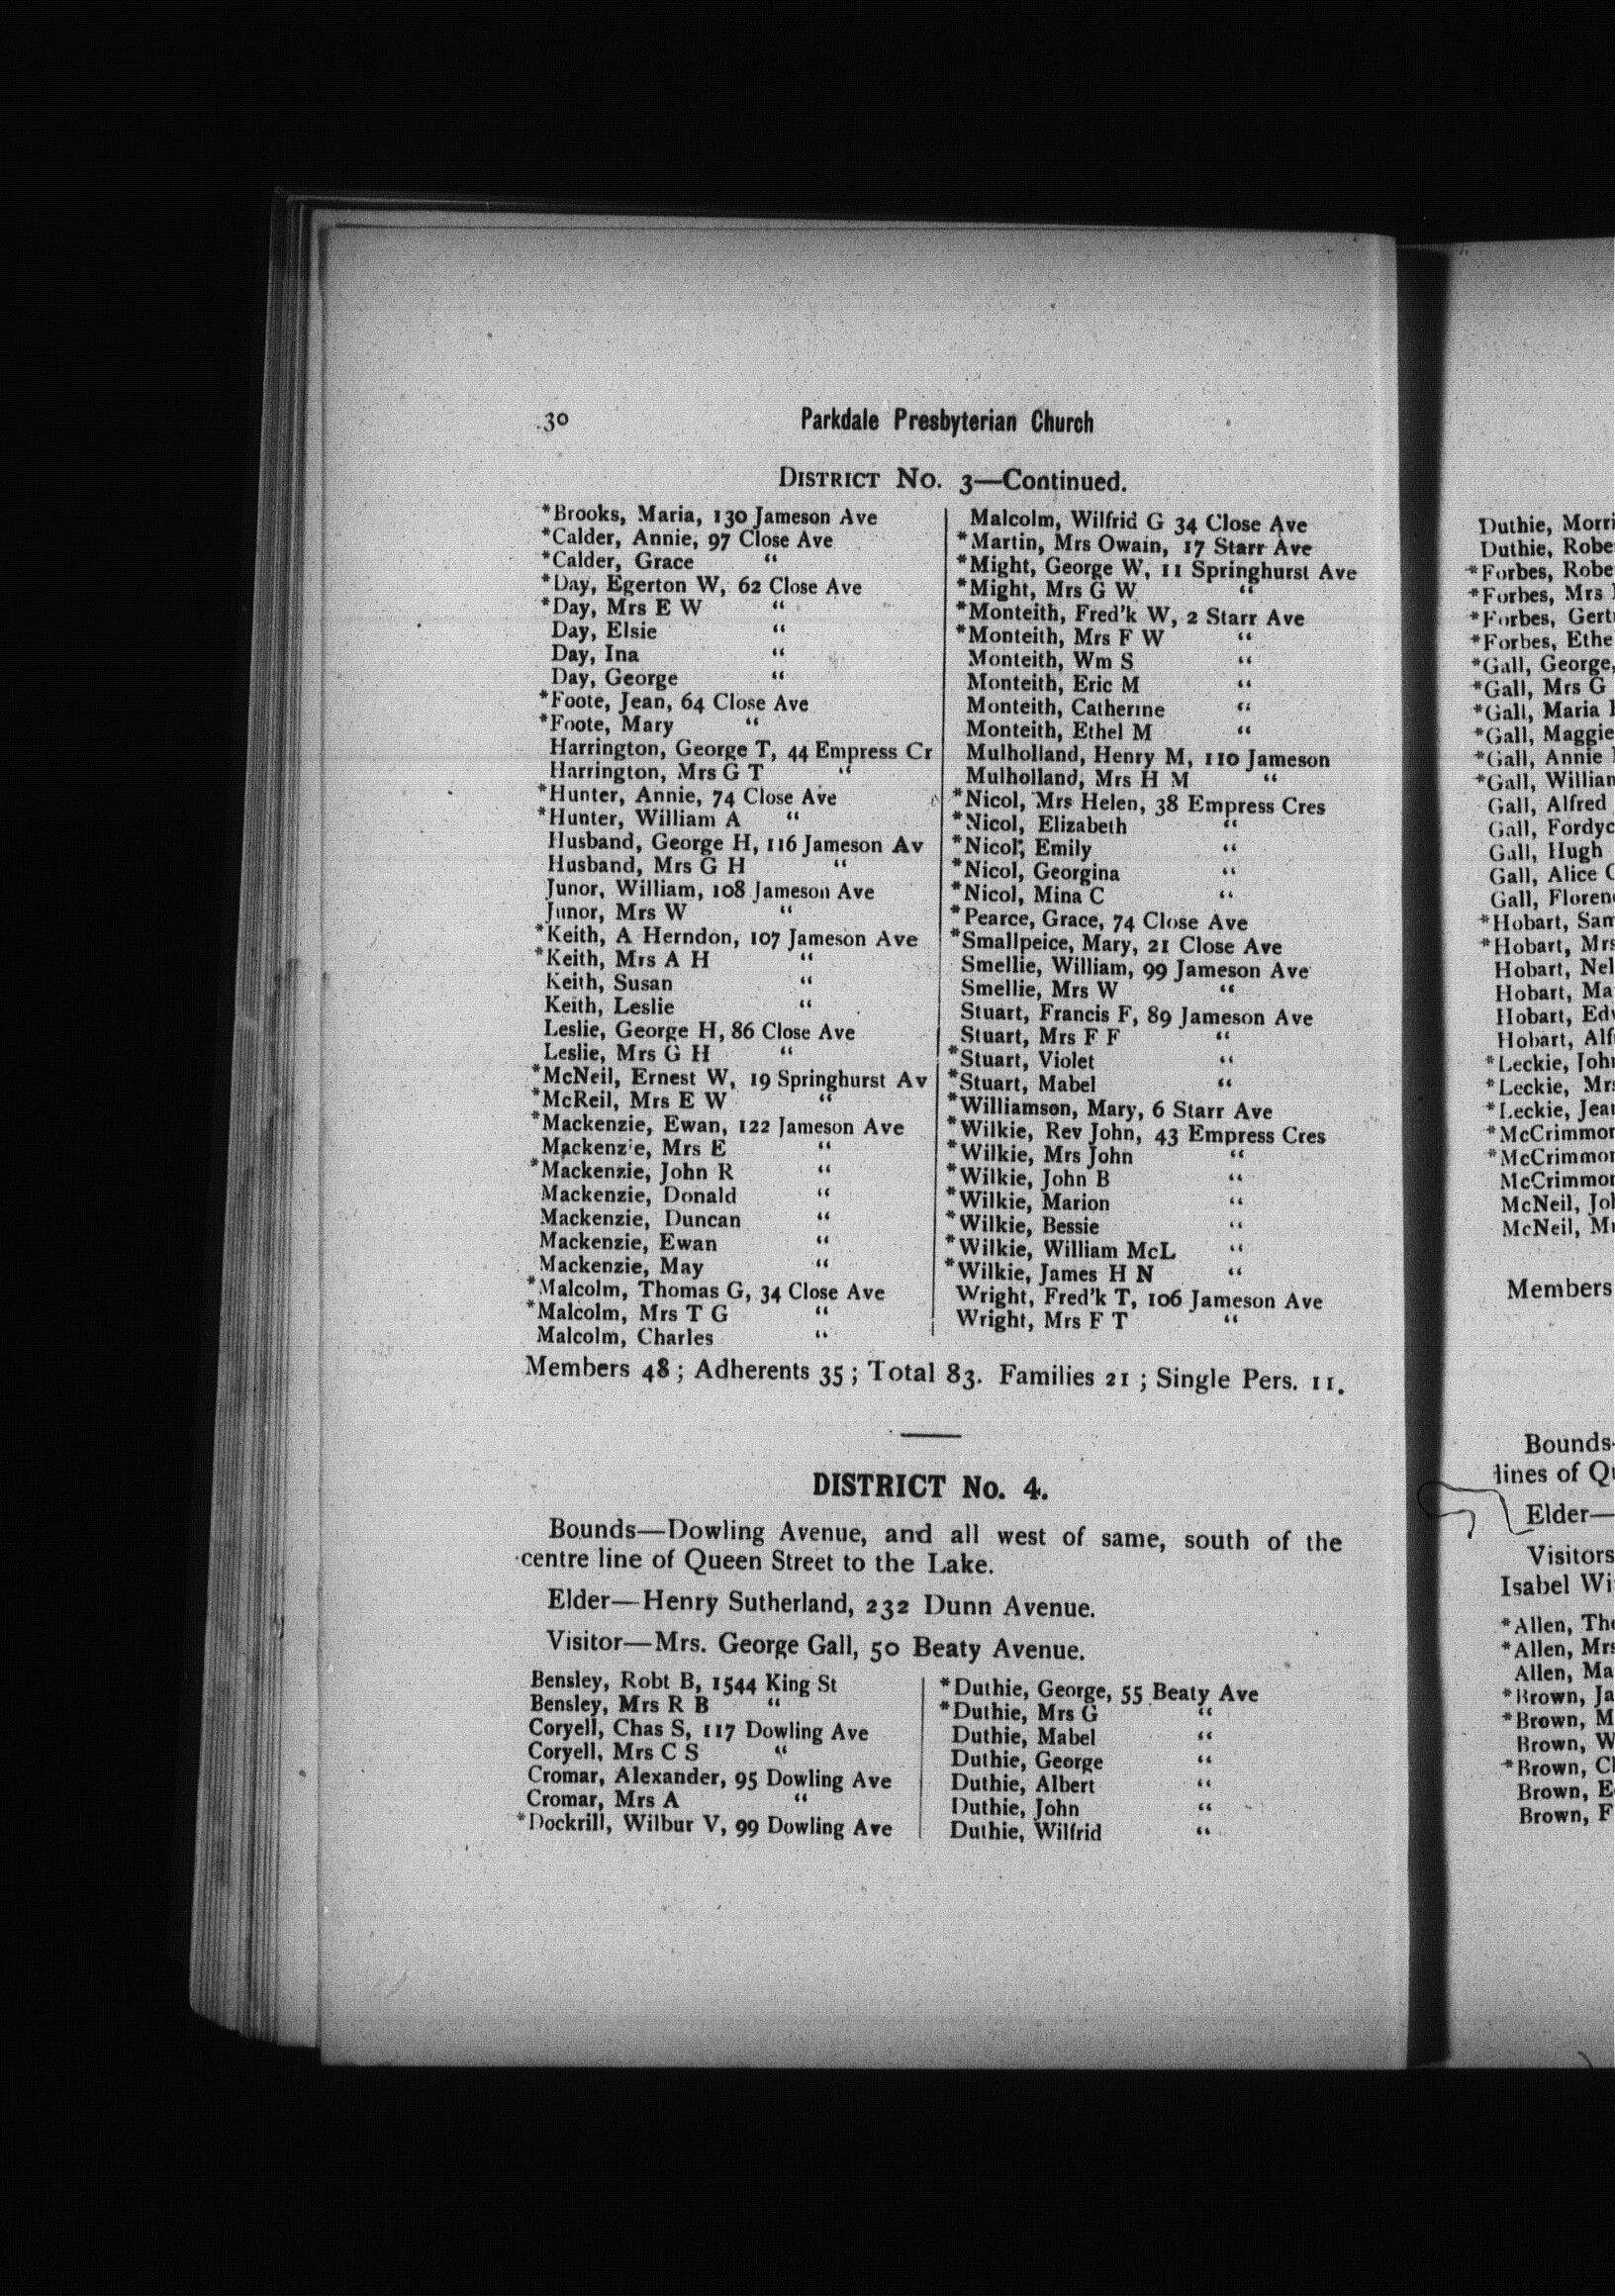 30
Parkdale Presbyterian Church
DISTRICT No. 3—Continued.
*Brooks, Maria, 130 Jameson Ave
*Calder, Annie, 97 Close Ave
*Calder, Grace “
*Day, Egerton W, 62 Close Ave
*Day, Mrs E W “
Day, Elsie “
Day, Ina “
Day, George “
*Foote, Jean, 64 Close Ave
*Foote, Mary “
Harrington, George T, 44 Empress Cr
Harrington, Mrs G T “
*Hunter, Annie, 74 Close Ave
*Hunter, William A “
Husband, George H, 116 Jameson Av
Husband, Mrs G H “
Junor, William, 108 Jameson Ave
Junor, Mrs W “
*Keith, A Herndon, 107 Jameson Ave
*Keith, Mrs A H “
Keith, Susan “
Keith, Leslie “
Leslie, George H, 86 Close Ave
Leslie, Mrs G H “
*McNeil, Ernest W, 19 Springhurst Av
*McReil, Mrs E W “
*Mackenzie, Ewan, 122 Jameson Ave
Mackenzie, Mrs E “
*Mackenzie, John R “
Mackenzie, Donald “
Mackenzie, Duncan “
Mackenzie, Ewan “
Mackenzie, May “
*Malcolm, Thomas G, 34 Close Ave
*Malcolm, Mrs T G “
Malcolm, Charles “
Malcolm, Wilfrid G 34 Close Ave
*Martin, Mrs Owain, 17 Starr Ave
*Might, George W, 11 Springhurst Ave
*Might, Mrs G W “
*Monteith, Fred'k W, 2 Starr Ave
*Monteith, Mrs F W “
Monteith, Wm S “
Monteith, Eric M “
Monteith, Catherine “
Monteith, Ethel M “
Mulholland, Henry M, 110 Jameson
Mulholland, Mrs H M “
*Nicol, Mrs Helen, 38 Empress Cres
*Nicol, Elizabeth “
*Nicol, Emily “
*Nicol, Georgina “
*Nicol, Mina C “
*Pearce, Grace, 74 Close Ave
*Smallpeice, Mary, 21 Close Ave
Smellie, William, 99 Jameson Ave
Smellie, Mrs W “
Stuart, Francis F, 89 Jameson Ave
Stuart, Mrs F F “
*Stuart, Violet “
*Stuart, Mabel “
*Williamson, Mary, 6 Starr Ave
*Wilkie, Rev John, 43 Empress Cres
*Wilkie, Mrs John “
*Wilkie, John B “
*Wilkie, Marion “
*Wilkie, Bessie “
*Wilkie, William McL “
*Wilkie, James H N “
Wright, Fred'k T, 106 Jameson Ave
Wright, Mrs F T “
Members 48 ; Adherents 35 ; Total 83. Families 21 ; Single Pers. 11.
DISTRICT No. 4.
Bounds—Dowling Avenue, and all west of same, south of the
centre line of Queen Street to the Lake.
Elder—Henry Sutherland, 232 Dunn Avenue.
Visitor—Mrs. George Gall, 50 Beaty Avenue.
Bensley, Robt B, 1544 King St
Bensley, Mrs R B “
Coryell, Chas S, 117 Dowling Ave
Coryell, Mrs C S “
Cromar, Alexander, 95 Dowling Ave
Cromar, Mrs A “
*Dockrill, Wilbur V, 99 Dowling Ave
*Duthie, George, 55 Beaty Ave
*Duthie, Mrs G “
Duthie, Mabel “
Duthie, George “
Duthie, Albert “
Duthie, John “
Duthie, Wilfrid “
Duthie,
Duthie,
*Forbes,
*Forbes, Mrs
*Forbes,
*Forbes,
*Gall, George,
*Gall, Mrs G
*Gall, Maria
*Gall, Maggie
*Gall, Annie
*Gall,
Gall, Alfred
Gall,
Gall, Hugh
Gall, Alice
Gall,
*Hobart,
*Hobart, Mrs
Hobart,
Hobart,
Hobart,
Hobart,
*Leckie,
*Leckie,
*Leckie,
McNeil,
McNeil,
Members
Bounds
lines of
Elder—
Visitors
Isabel
*Allen,
*Allen, Mrs
Allen,
*Brown,
*Brown,
Brown,
*Brown,
Brown,
Brown,